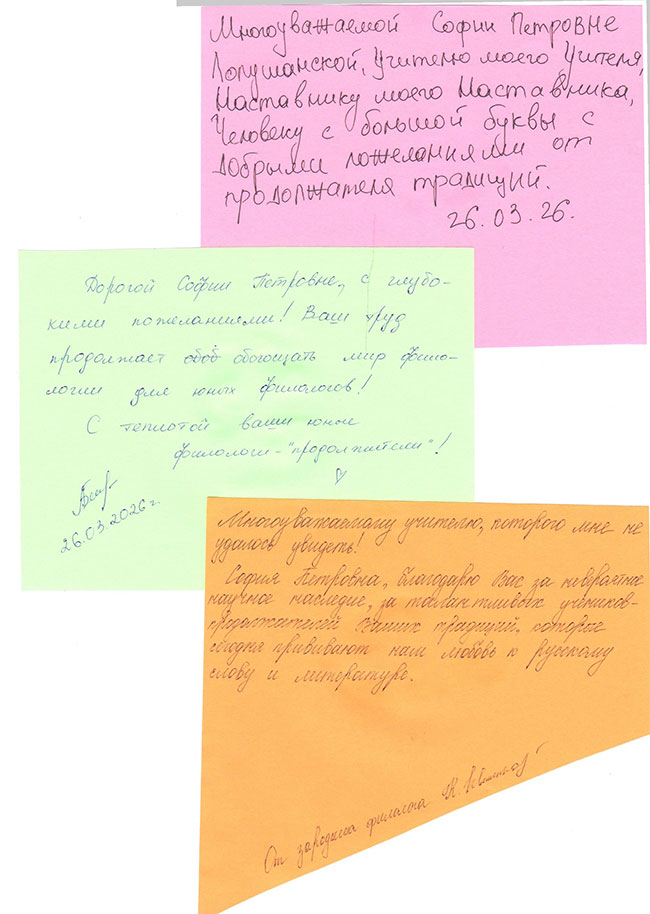 Многоуважаемой Софии Петровне
Лопушанской, Учителю моего Учителя,
Наставнику моего Наставника,
Человеку с большой буквы с
добрыми пожеланиями от
продолжателя традиций.
26.03.26.
Дорогой Софии Петровне, с глубо-
кими пожеланиями! Ваш труд
продолжает обоб обогощать мир фило-
логии для юных филологов!
С теплотой ваши юные
филологи-"продолжатели"!
26.03.2026 г.
Многоуважаемому учителю, которого мне не
удалось увидеть!
София Петровна, благодарю Вас за невероятное
научное наследие, за талантливых учеников-
продолжателей Ваших традиций, которые
сегодня прививают нам любовь к русскому
слову и литературе.
От зародыша филолога К.